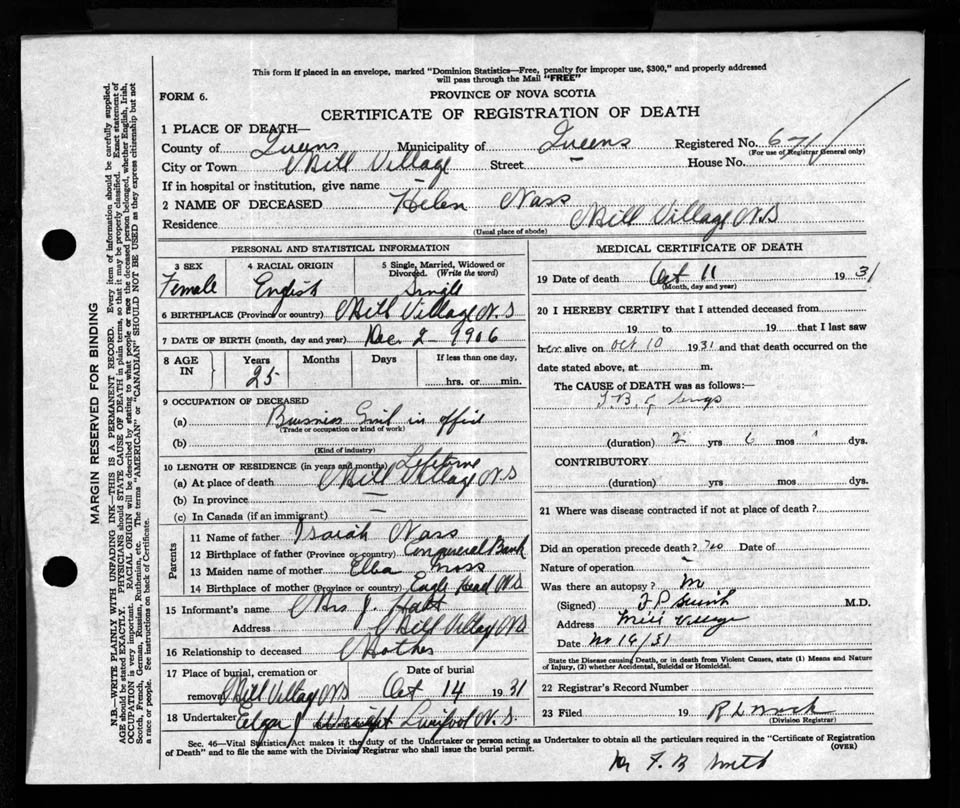 This form if placed in an envelope, marked "Dominion Statistics—Free, penalty for improper use, $300," and properly addressed
will pass through the Mail "FREE"
FORM 6.
PROVINCE OF NOVA SCOTIA
CERTIFICATE OF REGISTRATION OF DEATH
1 PLACE OF DEATH—
County of Queens Municipality of Queens Registered No. 671
(For use of Registrar General only)
City or Town Mill Village Street — House No.
If in hospital or institution, give name —
2 NAME OF DECEASED Helen Nass
Residence Mill Village N.S
(Usual place of abode)
PERSONAL AND STATISTICAL INFORMATION
3 SEX 4 RACIAL ORIGIN 5 Single, Married, Widowed or
Divorced. (Write the word)
Female English Single
6 BIRTHPLACE (Province or country) Mill Village N.S
7 DATE OF BIRTH (month, day and year) Dec 2 - 1906
8 AGE IN Years Months Days If less than one day,
25 hrs. or min.
9 OCCUPATION OF DECEASED
(a) Business Girl in office
(Trade or occupation or kind of work)
(b)
(Kind of industry)
10 LENGTH OF RESIDENCE (in years and months) Lifetime
(a) At place of death Mill Village N.S
(b) In province —
(c) In Canada (if an immigrant) —
Parents
11 Name of father Isaiah Nass
12 Birthplace of father (Province or country)
13 Maiden name of mother Ella
14 Birthplace of mother (Province or country) Eagle Head N.S
15 Informant's name Mrs J.
Address Mill Village N.S
16 Relationship to deceased Mother
17 Place of burial, cremation or Date of burial
removal Mill Village N.S Oct 14 1931
18 Undertaker Edgar J Wright Liverpool N.S
MEDICAL CERTIFICATE OF DEATH
19 Date of death Oct 11 1931
(Month, day and year)
20 I HEREBY CERTIFY that I attended deceased from
19 to 19 that I last saw
her alive on Oct 10 1931 and that death occurred on the
date stated above, at m.
The CAUSE of DEATH was as follows:—
T.B. of lungs
(duration) 2 yrs 6 mos dys.
CONTRIBUTORY
(duration) yrs mos dys.
21 Where was disease contracted if not at place of death?
Did an operation precede death? no Date of
Nature of operation
Was there an autopsy?
(Signed) Smith M.D.
Address Mill Village
Date /31
State the Disease causing Death, or in death from Violent Causes, state (1) Means and Nature
of Injury, (2) whether Accidental, Suicidal or Homicidal.
22 Registrar's Record Number
23 Filed 19
(Division Registrar)
Sec. 46—Vital Statistics Act makes it the duty of the Undertaker or person acting as Undertaker to obtain all the particulars required in the "Certificate of Registration
of Death" and to file the same with the Division Registrar who shall issue the burial permit. (OVER)
Dr F. B Smith
MARGIN RESERVED FOR BINDING
N.B.—WRITE PLAINLY WITH UNFADING INK—THIS IS A PERMANENT RECORD. Every item of information should be carefully supplied.
AGE should be stated EXACTLY. PHYSICIANS should STATE CAUSE OF DEATH in plain terms, so that it may be properly classified. Exact statement of
OCCUPATION is very important. RACIAL ORIGIN will be described by stating to what people or race the deceased person belonged, whether English, Irish,
Scotch, French, German, Russian, Ruthenian, etc. The terms "AMERICAN" or "CANADIAN" SHOULD NOT BE USED as they express citizenship but not
a race or people. See instructions on back of Certificate.